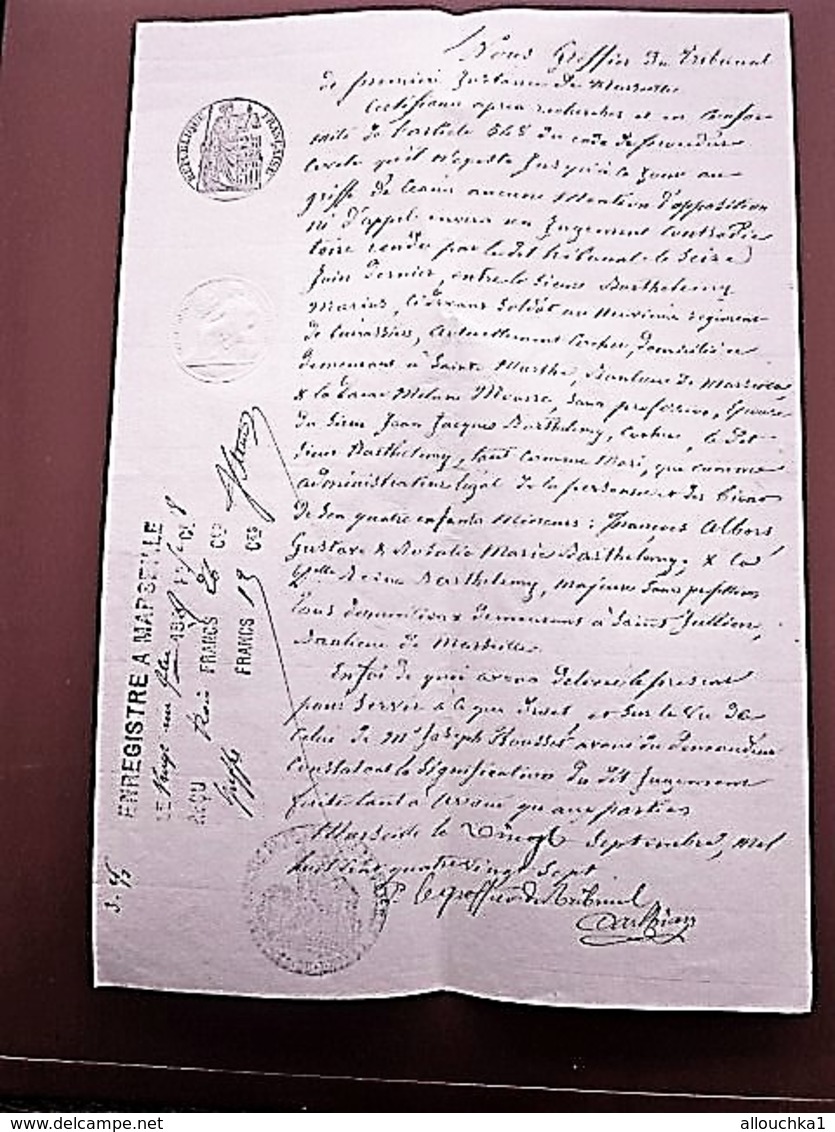 Nous Greffier du Tribunal
de première Instance de Marseille
Certifions après recherches et en confor
mité de l'article 548 du code de procédure
civile qu'il n'existe jusqu'à ce jour au
greffe de céans aucune mention d'opposition
ni d'appel envers un jugement contradic
toire rendu par le dit tribunal le seize
Juin dernier, entre le sieur Barthélemy
Marius, ci devant soldat au neuvième régiment
de Cuirassiers, actuellement cocher, domicilié et
demeurant à Sainte Marthe, Banlieue de Marseille,
& la Dame Mélanie Mousse, sans profession, épouse
du sieur Jean Jacques Barthélemy, cocher, le dit
sieur Barthélemy, tant comme Mari, que comme
administrateur légal de la personne et des biens
de ses quatre enfants Mineurs : François Albert
Gustave & Rosalie Marie Barthélemy, & la
Dlle Reine Barthélemy, majeure sans profession
tous domiciliés & demeurant à Saint Jullien,
Banlieue de Marseille.
En foi de quoi avons délivré le présent
pour servir à ce que droit, et sur le vu de
celui de Me Joseph Rousset avoué du demandeur
constatant la signification du dit jugement
faite tant à avoué qu'aux parties
Marseille le Vingt Septembre, mil
huit cent quatre vingt sept
P. Le greffier du Tribunal
REPUBLIQUE FRANÇAISE
ENREGISTRE A MARSEILLE
LE Vingt un 188
REÇU trois FRANCS CES
Greffe FRANCS 13 CES
delcampe.net
allouchka1